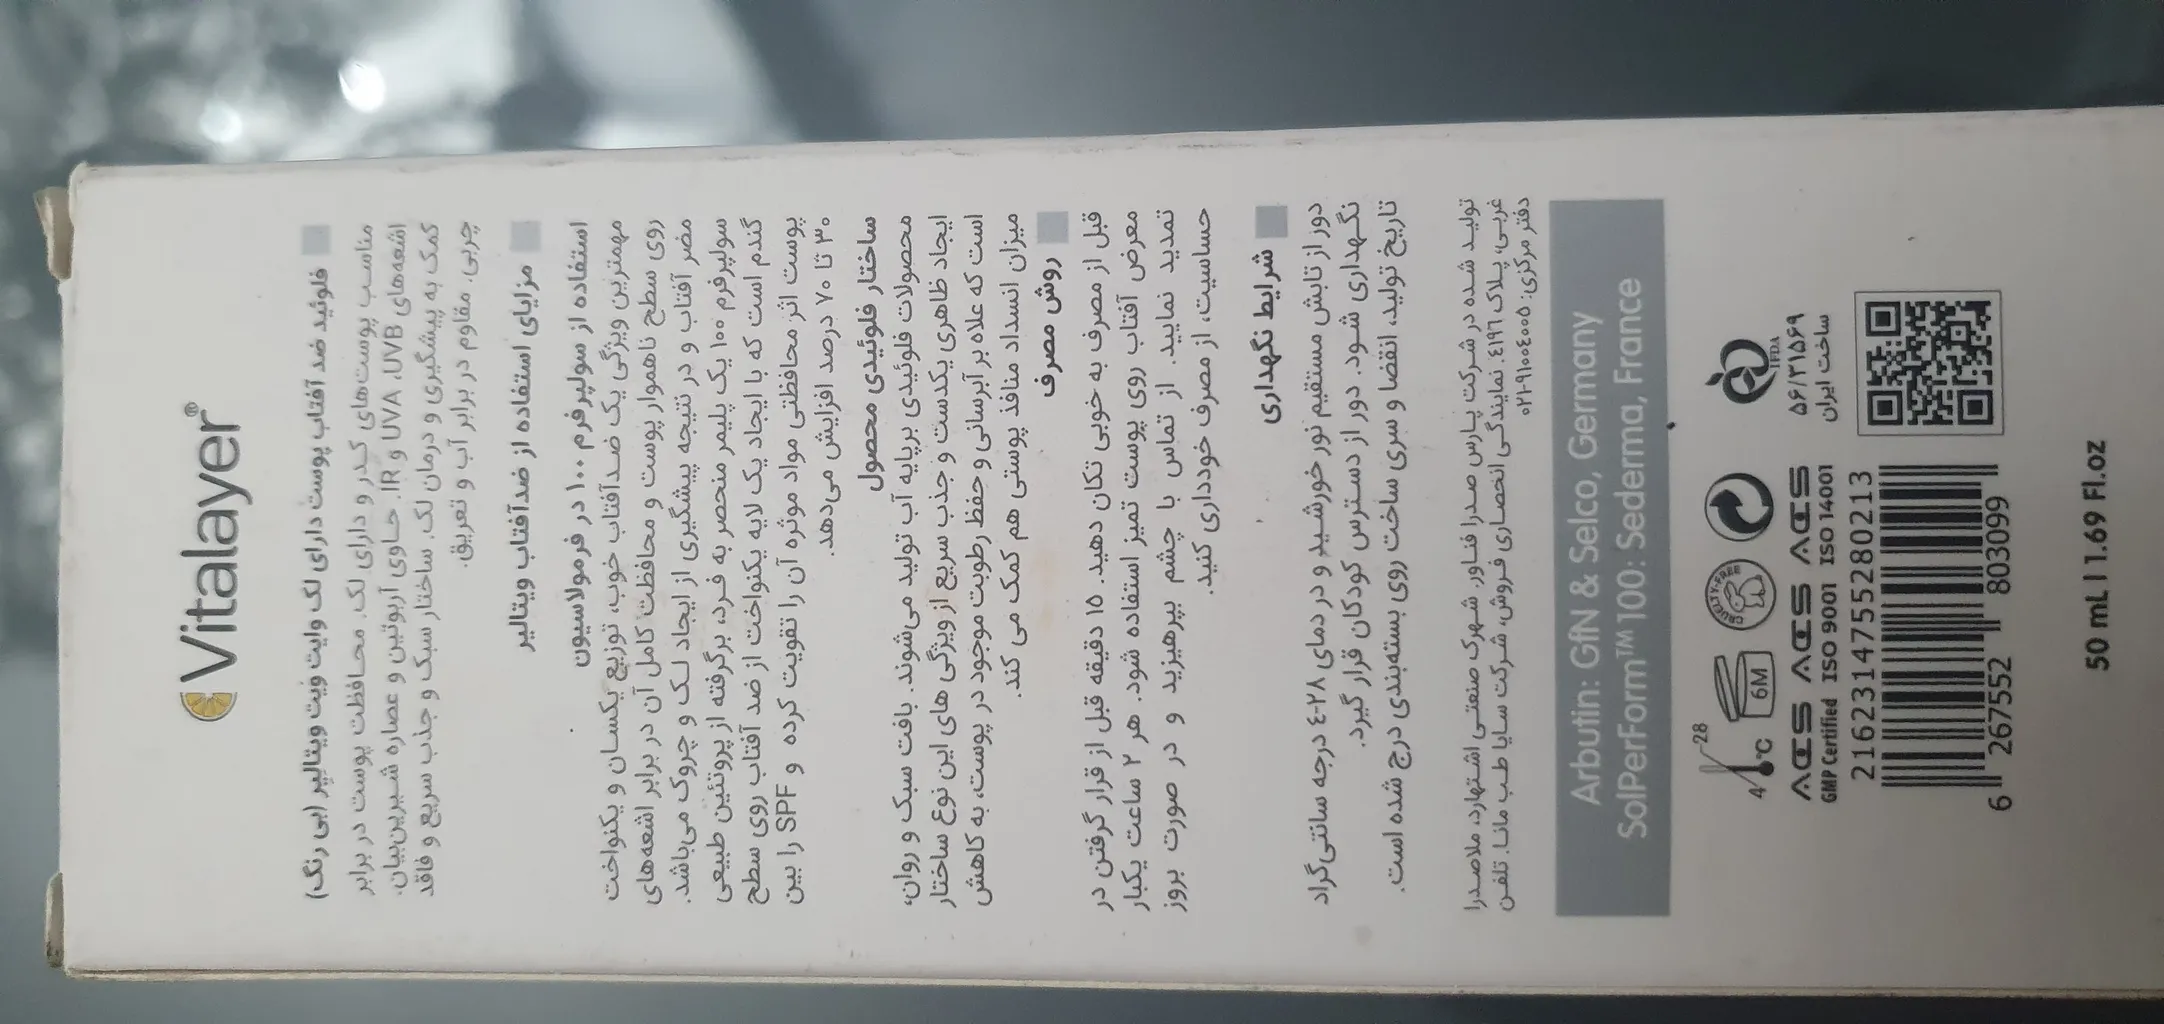 Vitalayer®
فلوئید ضد آفتاب پوست دارای لک وایت ویت ویتالیر (بی رنگ)
مناسب پوست‌های کدر و دارای لک. محافظت پوست در برابر
اشعه‌های UVA ،UVB و IR. حاوی آربوتین و عصاره شیرین‌بیان.
کمک به پیشگیری و درمان لک. ساختار سبک و جذب سریع و فاقد
چربی. مقاوم در برابر آب و تعریق.
مزایای استفاده از ضدآفتاب ویتالیر
استفاده از سولپرفرم ۱۰۰ در فرمولاسیون
مهمترین ویژگی یک ضدآفتاب خوب، توزیع یکسان و یکنواخت
روی سطح ناهموار پوست و محافظت کامل آن در برابر اشعه‌های
مضر آفتاب و در نتیجه پیشگیری از ایجاد لک و چروک می‌باشد.
سولپرفرم ۱۰۰ یک پلیمر منحصر به فرد، برگرفته از پروتئین طبیعی
گندم است که با ایجاد یک لایه یکنواخت از ضد آفتاب روی سطح
پوست اثر محافظتی مواد موثره آن را تقویت کرده و SPF را بین
۳۰ تا ۷۰ درصد افزایش می‌دهد.
ساختار فلوئیدی محصول
محصولات فلوئیدی برپایه آب تولید می‌شوند. بافت سبک و روان،
ایجاد ظاهری یکدست و جذب سریع از ویژگی های این نوع ساختار
است که علاه بر آبرسانی و حفظ رطوبت موجود در پوست، به کاهش
میزان انسداد منافذ پوستی هم کمک می کند.
روش مصرف
قبل از مصرف به خوبی تکان دهید. ۱۵ دقیقه قبل از قرار گرفتن در
معرض آفتاب روی پوست تمیز استفاده شود. هر ۲ ساعت یکبار
تمدید نمایید. از تماس با چشم بپرهیزید و در صورت بروز
حساسیت، از مصرف خودداری کنید.
شرایط نگهداری
دور از تابش مستقیم نور خورشید و در دمای ۲۸-٤ درجه سانتی‌گراد
نگهداری شود. دور از دسترس کودکان قرار گیرد.
تاریخ تولید، انقضا و سری ساخت روی بسته‌بندی درج شده است.
تولید شده در شرکت پارس صدرا فناور. شهرک صنعتی اشتهارد، ملاصدرا
غربی، پلاک ٤۱۹٦. نمایندگی انحصاری فروش، شرکت سایا طب مانا. تلفن
دفتر مرکزی: ۹۱۰۰٤۰۰۵-۰۲۱
Arbutin: GfN & Selco, Germany
SolPerForm™ 100: Sederma, France
4 °C 28
6M
CRUELTY-FREE
IFDA
۵۶/۳۱۵۶۹
ساخت ایران
ACS ACS ACS
GMP Certified ISO 9001 ISO 14001
2116231475528021​3
6 267552 803099
50 mL | 1.69 Fl.oz